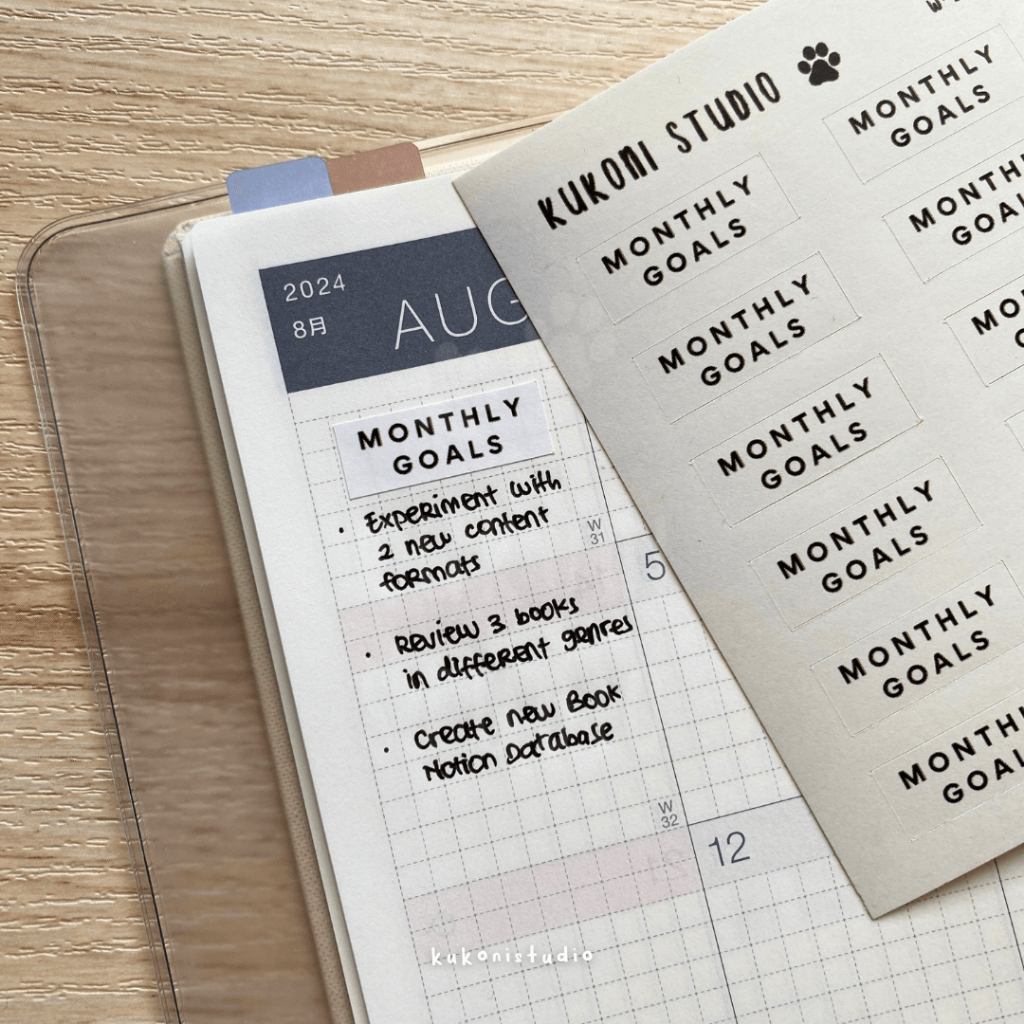 2024
8月
AUG
MONTHLY
GOALS
• Experiment with
2 new content
formats
• Review 3 books
in different genres
• Create new Book
Notion Database
W
31
5
W
32
12
KUKONI STUDIO
MONTHLY
GOALS
MONTHLY
GOALS
MONTHLY
GOALS
MONTHLY
GOALS
MONTHLY
GOALS
MONTHLY
GOALS
MONTHLY
GOALS
kukonistudio